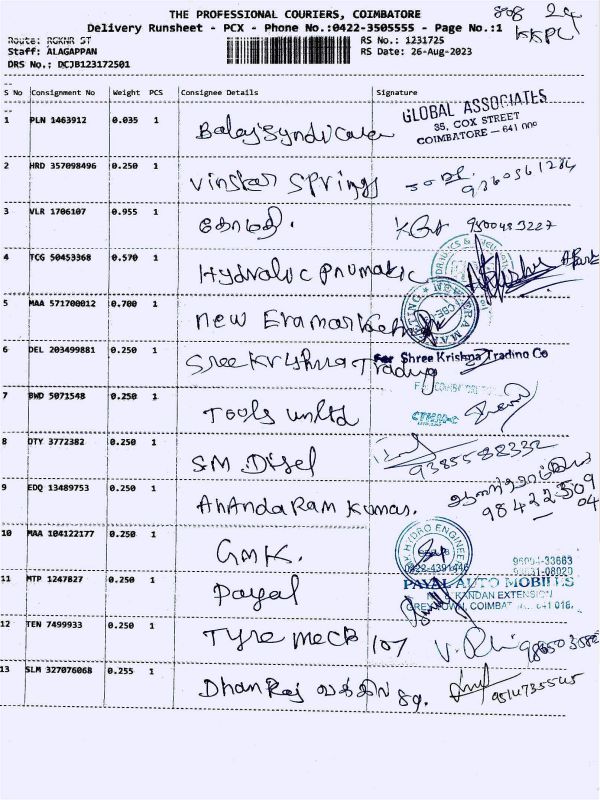 THE PROFESSIONAL COURIERS, COIMBATORE
Delivery Runsheet - PCX - Phone No.:0422-3505555 - Page No.:1
Route: RGKNR ST
RS No.: 1231725
Staff: ALAGAPPAN
RS Date: 26-Aug-2023
DRS No.: DCJB123172501
KKPC
S No Consignment No Weight PCS Consignee Details Signature
1 PLN 1463912 0.035 1
GLOBAL ASSOCIATES
35, COX STREET
COIMBATORE - 641 000
2 HRD 357098496 0.250 1 Vinstar Springs
3 VLR 1706107 0.955 1 கோமதி.
4 TCG 50453368 0.570 1 Hydraluc pnumatic
5 MAA 571700012 0.700 1 new Era marketing
6 DEL 203499881 0.250 1 Sree Krishna Trading
For Shree Krishna Trading Co
7 BWD 5071548 0.250 1 Tools unltd
8 OTY 3772382 0.250 1 S.M. Disel
9385588332
9 EDQ 13489753 0.250 1 Ananda Ram Kumar.
98422 509 04
10 MAA 104122177 0.250 1 GMK.
HYDRO ENGINEE
0422-4391446
11 MTP 1247827 0.250 1 Payal
PAYAL AUTO MOBILES
KANDAN EXTENSION
12 TEN 7499933 0.250 1 Tyre meck 107
13 SLM 327076068 0.255 1 Dhanraj